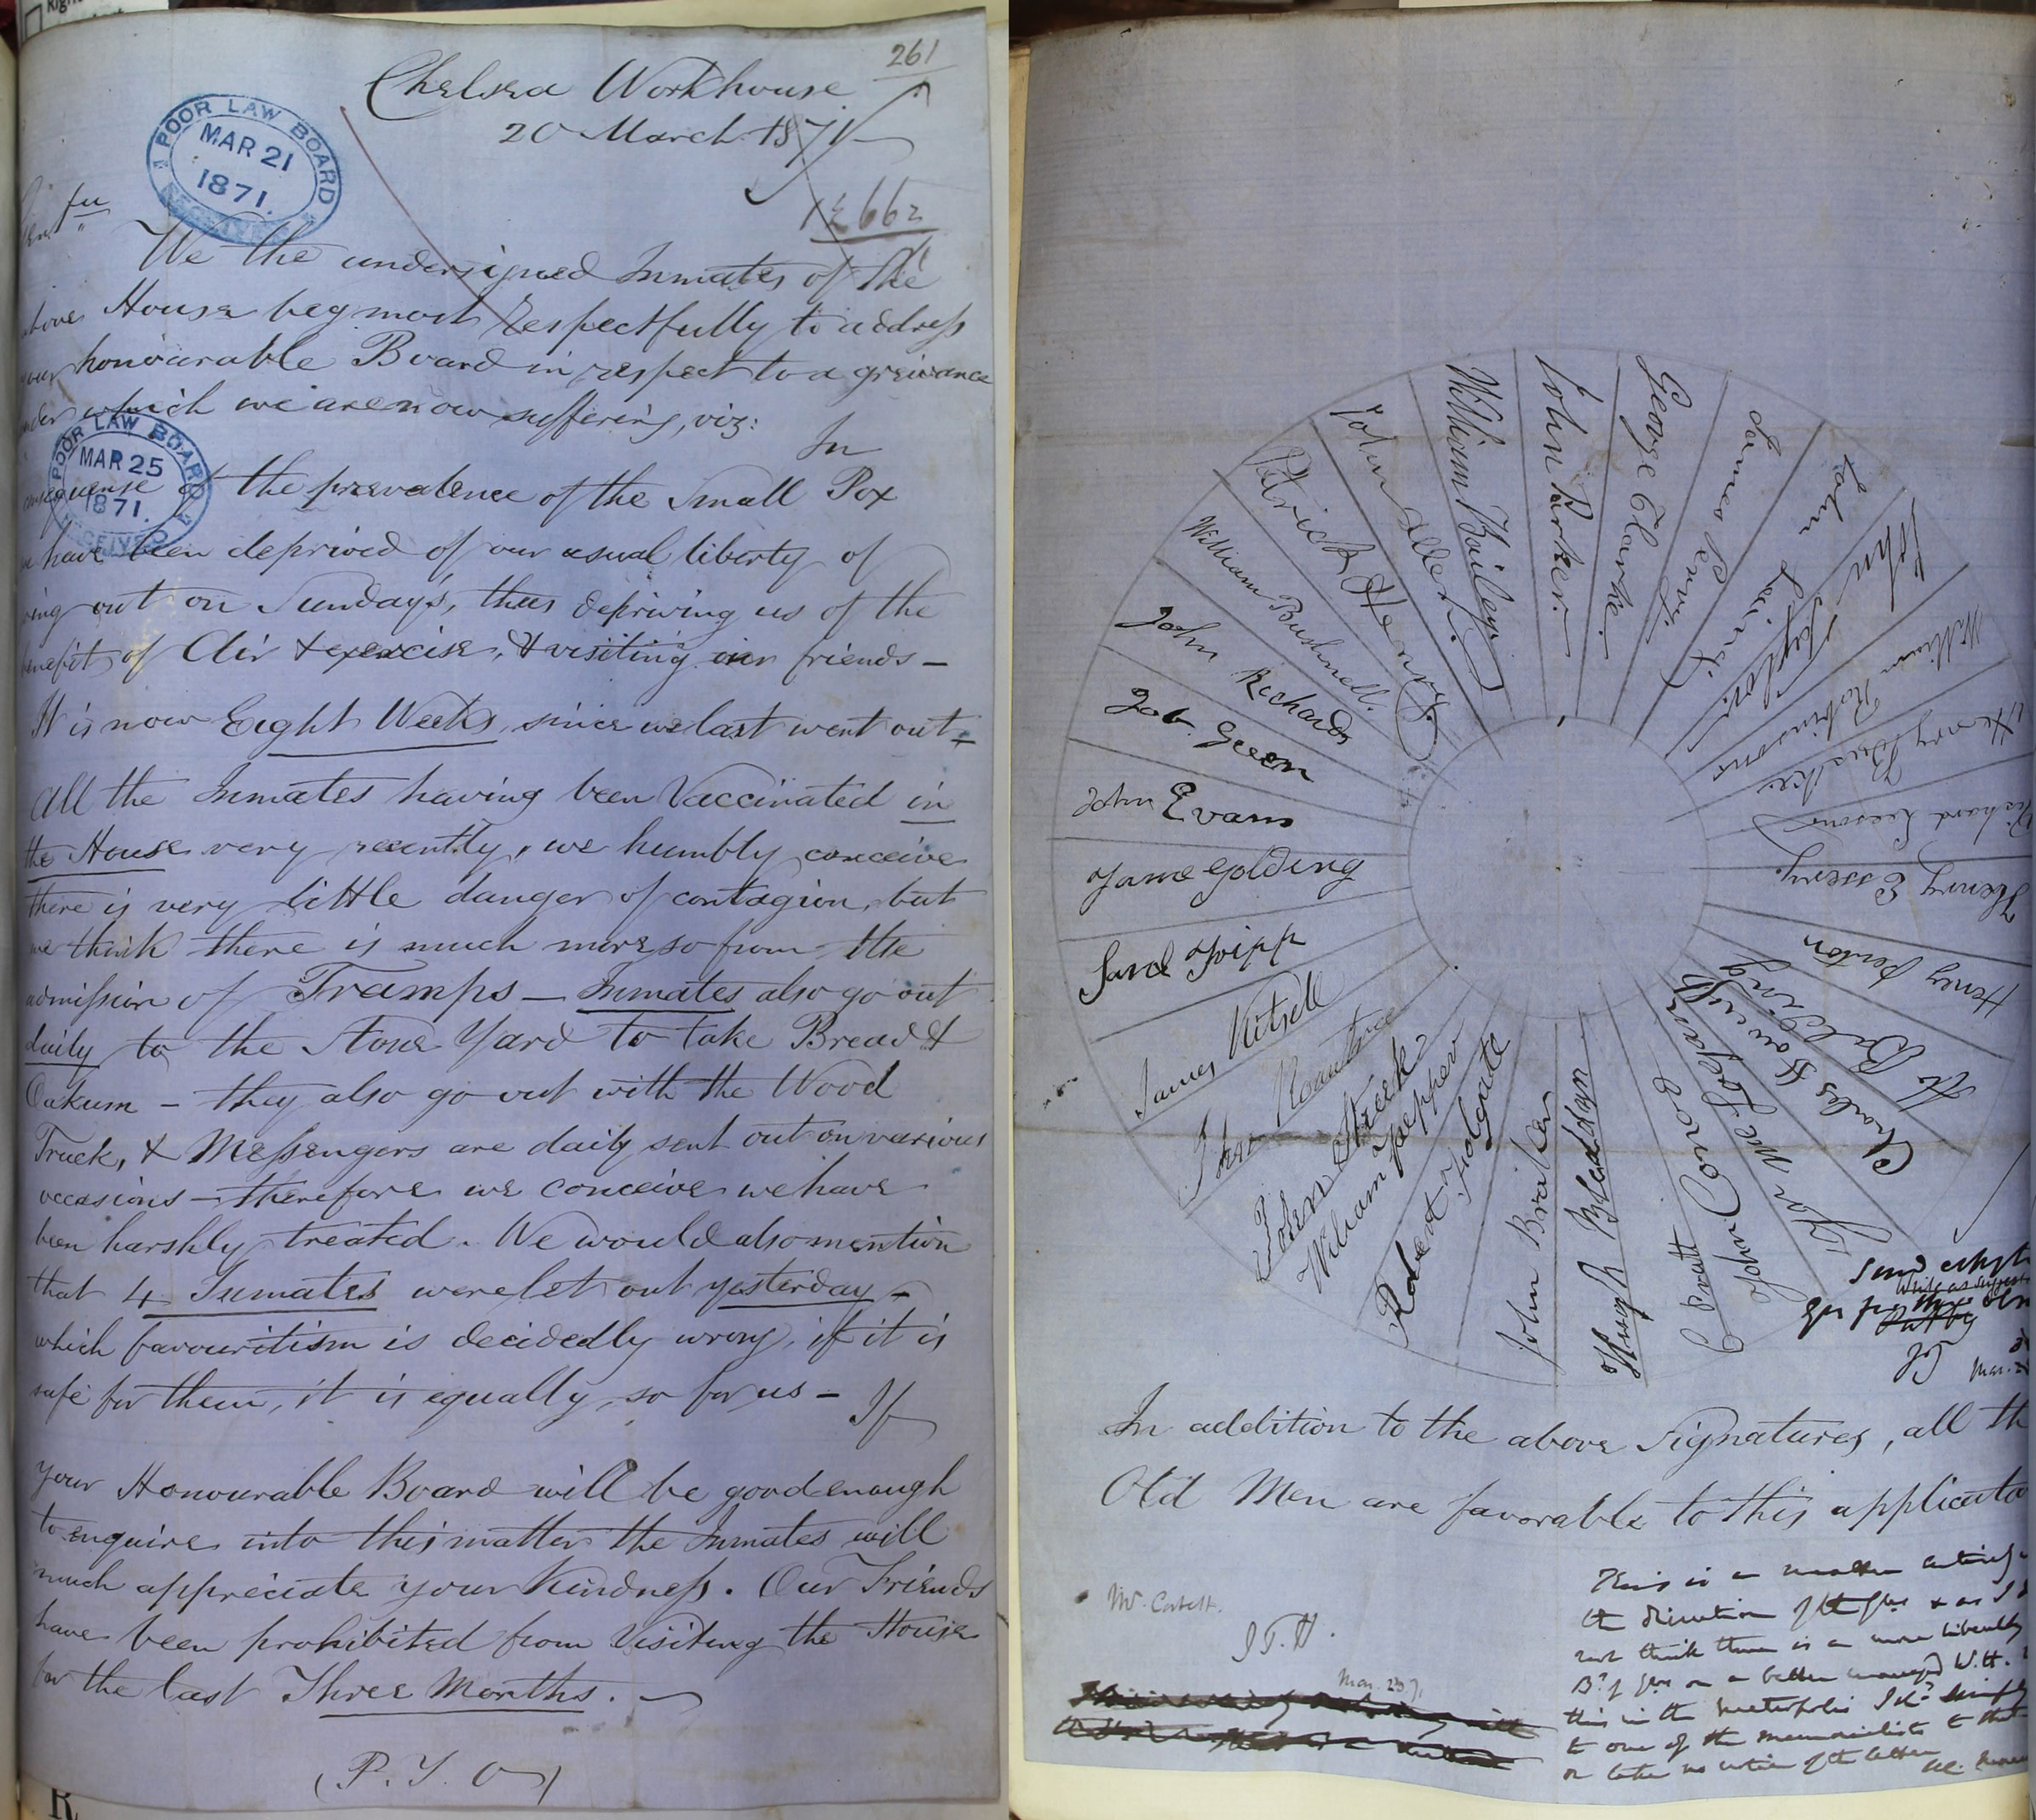 261
Chelsea Workhouse
20 March 1871
POOR LAW BOARD
MAR 21
1871.
RECEIVED
We the undersigned Inmates of the
above House beg most respectfully to address
your honourable Board in respect to a greivance
under which we are now suffering, viz:
In
POOR LAW BOARD
MAR 25
1871.
RECEIVED
consequense of the prevalence of the Small Pox
we have been deprived of our usual liberty of
going out on Sundays, thus depriving us of the
benefit of Air & exercise, & visiting our friends —
It is now Eight Weeks, since we last went out —
All the Inmates having been Vaccinated in
the House very recently, we humbly conceive
there is very little danger of contagion, but
we think there is much more so from the
admission of Tramps — Inmates also go out
daily to the Stone Yard to take Bread &
Oakum — they also go out with the Wood
Truck, & Messengers are daily sent out on various
occasions — therefore we conceive we have
been harshly treated. We would also mention
that 4 Inmates were let out yesterday —
which favouritism is decidedly wrong, if it is
safe for them, it is equally so for us —
If
your Honourable Board will be good enough
to enquire into this matter the Inmates will
much appreciate your Kindness. Our Friends
have been prohibited from Visiting the House
for the last Three Months.
(P.T.O)
John Parker.
George Clarke.
James Perry.
John Laing
John Taylor
William Robinson
Henry Drake
Richard Leeson
Henry Essery.
Henry Penton
Charles Hawes
John
David
C Pratt
Hugh Bleaddyn
John Brailey
Robert Folgate
William Pepper
John Streek
James Kitsell
Tripp
Jame Golding
John Evans
Job. Green
John Richards
William Bushnell.
Patrick Henry.
John Allen.
William Bailey
In addition to the above Signatures, all the
Old Men are favorable to this application
Mr. Corbett.
J.T.H.
Mar. 23.71
This is a matter entirely
the discretion of the Gns & as I
not think there is a more liberally
Bd of Gns or a better managed W.H.
this in the metropolis I shd simply
to one of the memorialists to that
or take no notice of the letter